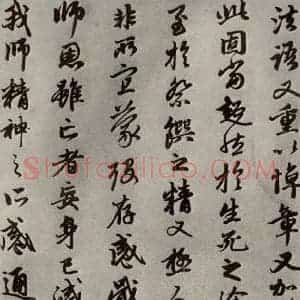 法語又重以悼章又加
此固當超然於生死之
至於祭饌之精又極人
非所宜蒙歿存感戴
師恩雖亡者妄身已滅
我師精神之所感通
Shufaziliao.com